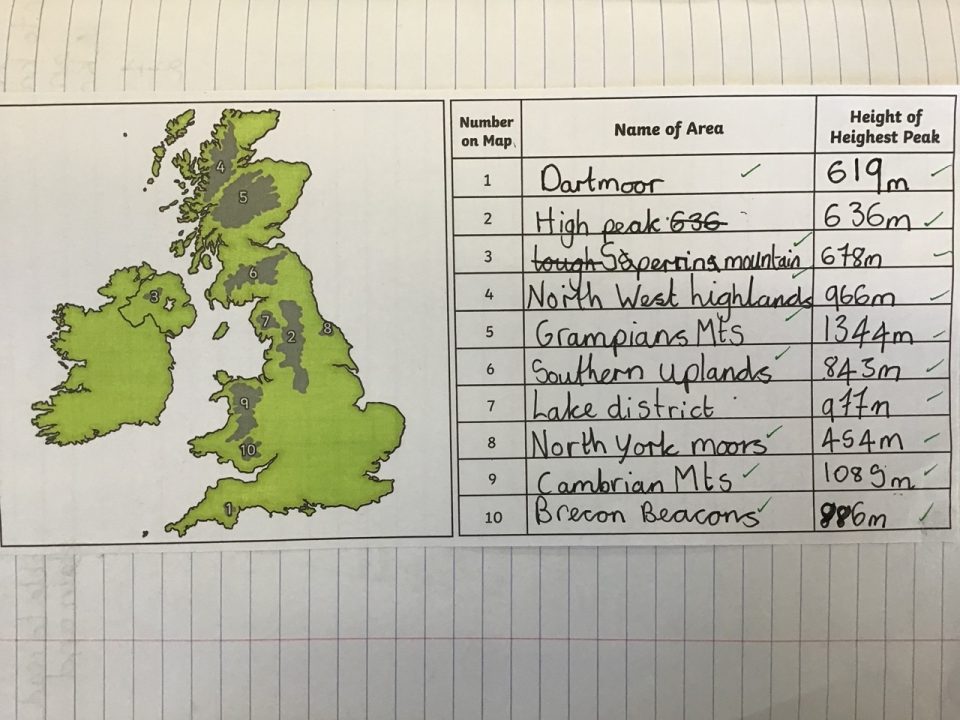 Number on Map Name of Area Height of Heighest Peak
1 Dartmoor 619m
2 High peak 636 636m
3 tough Saperrins mountain 678m
4 North West highlands 966m
5 Grampians Mts 1344m
6 Southern uplands 843m
7 Lake district 977m
8 North York moors 454m
9 Cambrian Mts 1089m
10 Brecon Beacons 886m
4
5
6
3
7
8
2
9
10
1